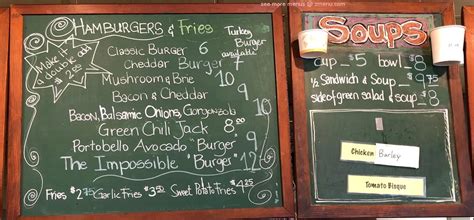 see more menus @ zmenu.com
HAMBURGERS & Fries
Make it a double add $2.50
Turkey Burger available
Classic Burger 6
Cheddar Burger 7
Mushroom & Brie 10
Bacon & Cheddar 9
Bacon, Balsamic Onions, Gorgonzola 10
Green Chili Jack 8.00
Portobello Avocado "Burger" 9
The Impossible "Burger" 12
Fries $2.75 Garlic Fries $3.50 Sweet Potato Fries $4.25
SOUPS
cup $5 bowl $8
½ Sandwich & Soup $8.75
side of green salad & soup $8
Chicken Barley
Tomato Bisque